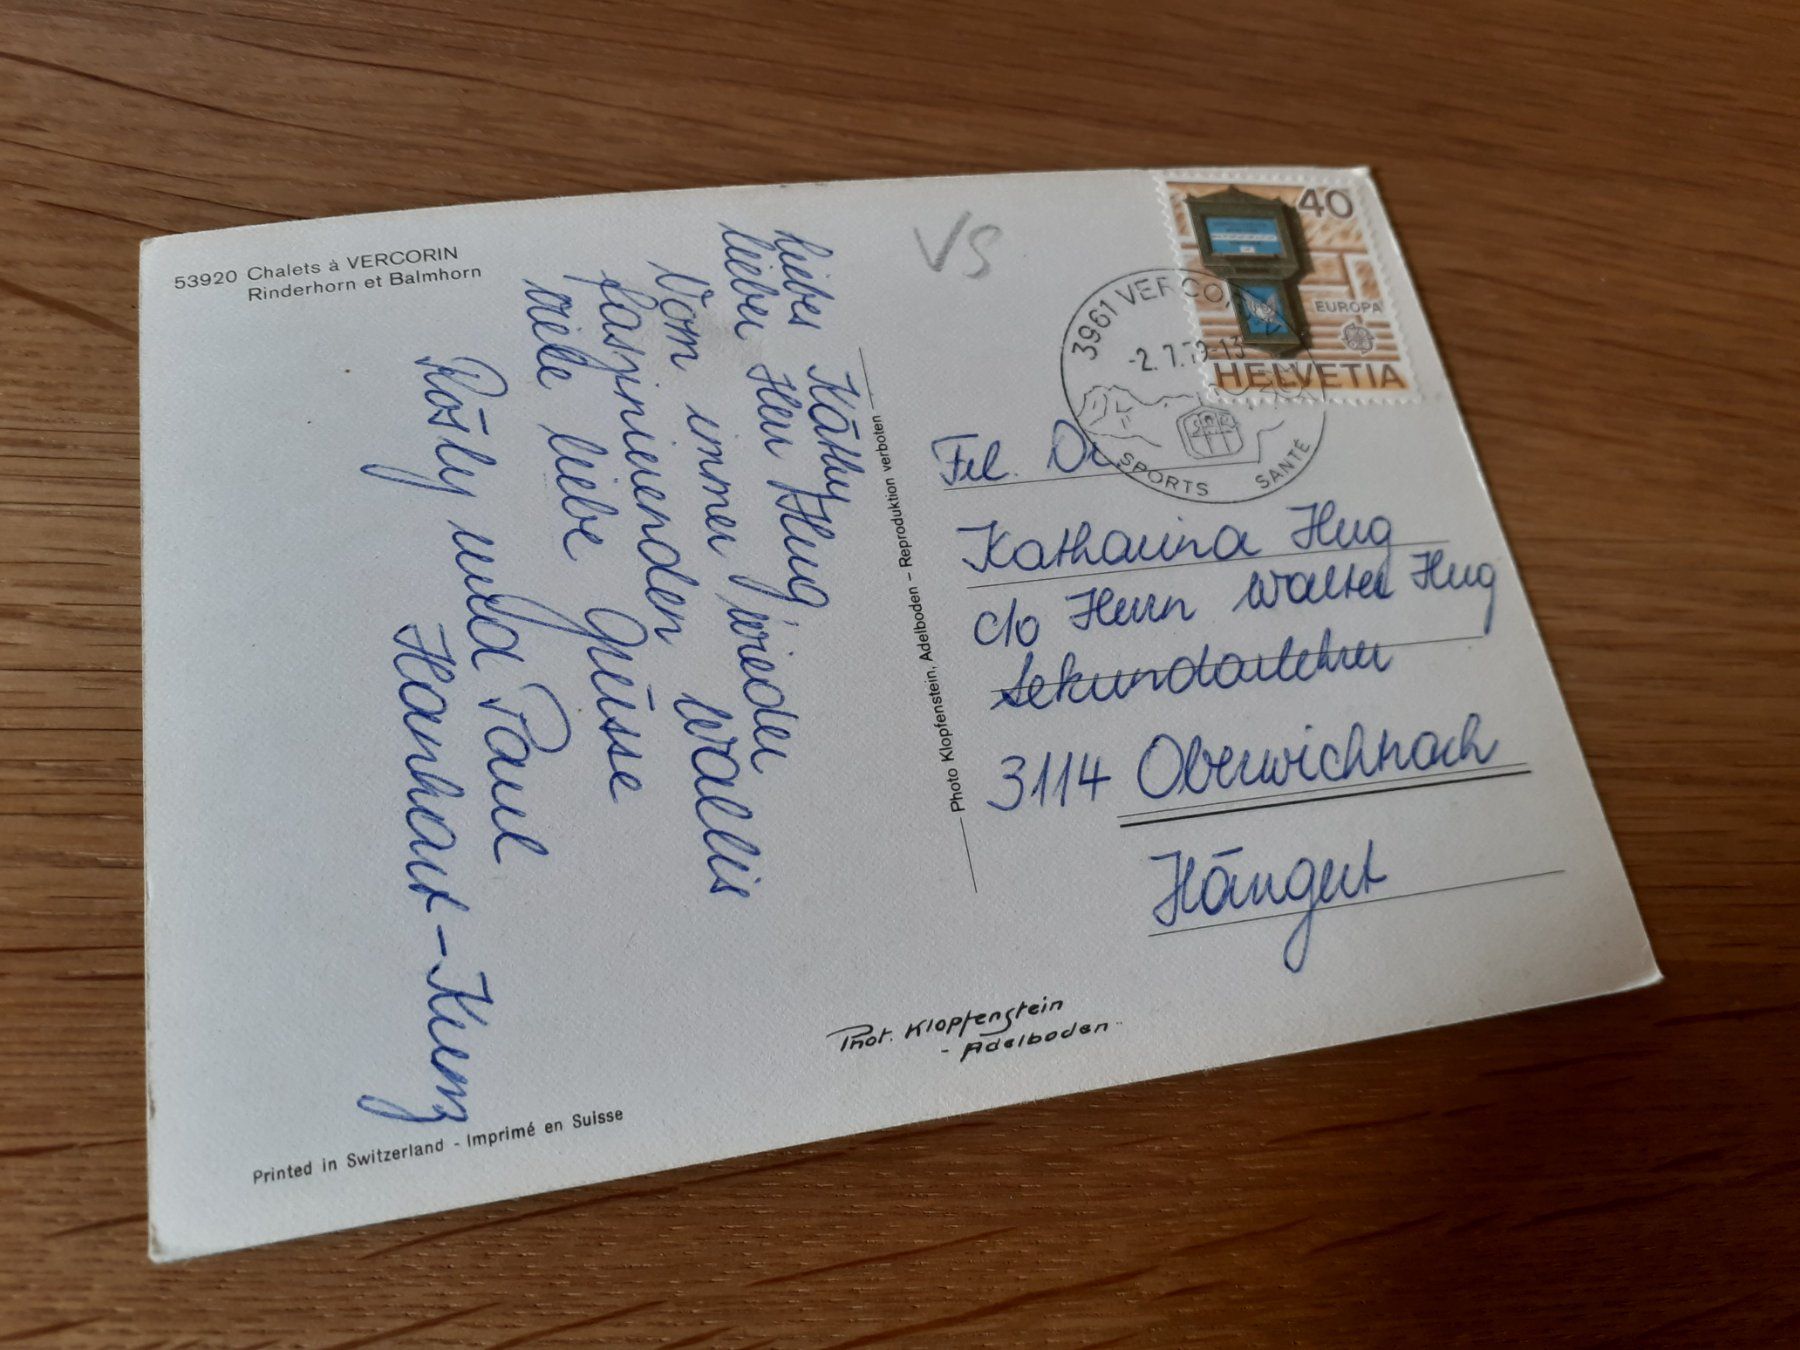 53920 Chalets à VERCORIN
Rinderhorn et Balmhorn
liebes Käthy
lieber Herr Hug
Vom immer wieder
faszinierenden Wallis
viele liebe Grüsse
Rösly und Paul
Hanhart-Kunz
Printed in Switzerland - Imprimé en Suisse
Photo Klopfenstein, Adelboden – Reproduktion verboten
Phot. Klopfenstein
- Adelboden -
VS
40
EUROPA
HELVETIA
3961 VERCO
-2.7.79-13
SPORTS SANTÉ
Frl.
Katharina Hug
c/o Herrn Walter Hug
Sekundarlehrer
3114 Oberwichtrach
Hängert